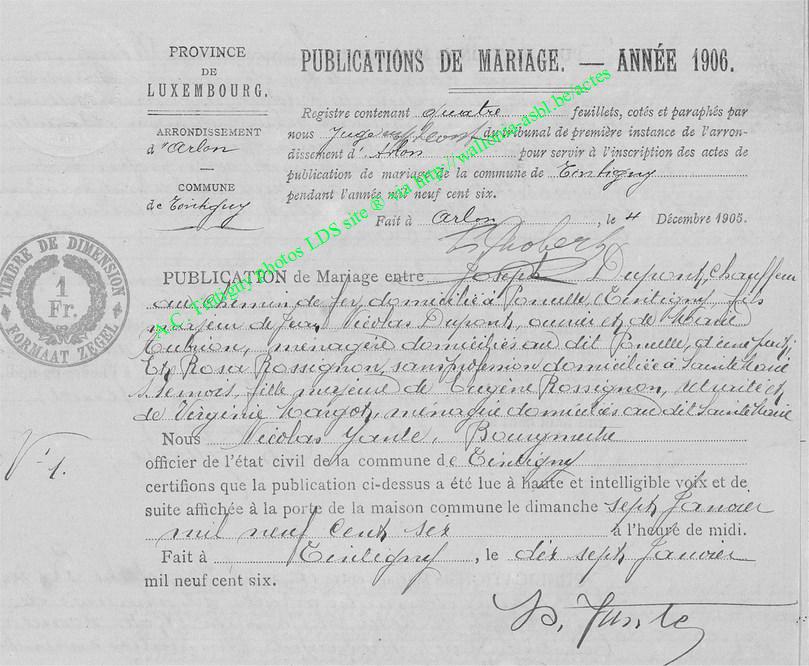 PROVINCE
DE
LUXEMBOURG.
ARRONDISSEMENT
d'Arlon
COMMUNE
de Tintigny
PUBLICATIONS DE MARIAGE. — ANNÉE 1906.
Registre contenant quatre feuillets, cotés et paraphés par
nous Juge du tribunal de première instance de l'arron-
dissement d'Arlon pour servir à l'inscription des actes de
publication de mariage de la commune de Tintigny
pendant l'année mil neuf cent six.
Fait à Arlon, le 4 Décembre 1905.
TIMBRE DE DIMENSION
1
Fr.
FORMAAT ZEGEL
A.C. Tintigny photos LDS site ® via http://wallonia-asbl.be/actes
PUBLICATION de Mariage entre Joseph Dupont, chauffeur
au chemin de fer, domicilié à Tintigny, fils
majeur de Jean Nicolas Dupont, ouvrier et de Marie
ménagère domiciliés au dit d'une part;
Et Rosa Rossignon, sans profession domiciliée à Sainte Marie
s. Semois, fille majeure de Eugène Rossignon, et
de Virginie Margot, ménagère domiciliés au dit Sainte Marie
N° 1.
Nous Nicolas Bourgmestre
officier de l'état civil de la commune de Tintigny
certifions que la publication ci-dessus a été lue à haute et intelligible voix et de
suite affichée à la porte de la maison commune le dimanche sept Janvier
mil neuf cent six à l'heure de midi.
Fait à Tintigny, le dix sept Janvier
mil neuf cent six.